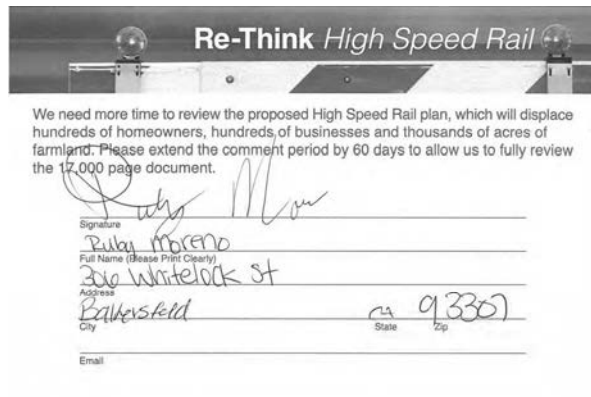 Re-Think High Speed Rail
We need more time to review the proposed High Speed Rail plan, which will displace
hundreds of homeowners, hundreds of businesses and thousands of acres of
farmland. Please extend the comment period by 60 days to allow us to fully review
the 17,000 page document.
Ruby Mor
Signature
Ruby Moreno
Full Name (Please Print Clearly)
306 Whitelock St
Address
Bakersfeld CA 93307
City State Zip
Email